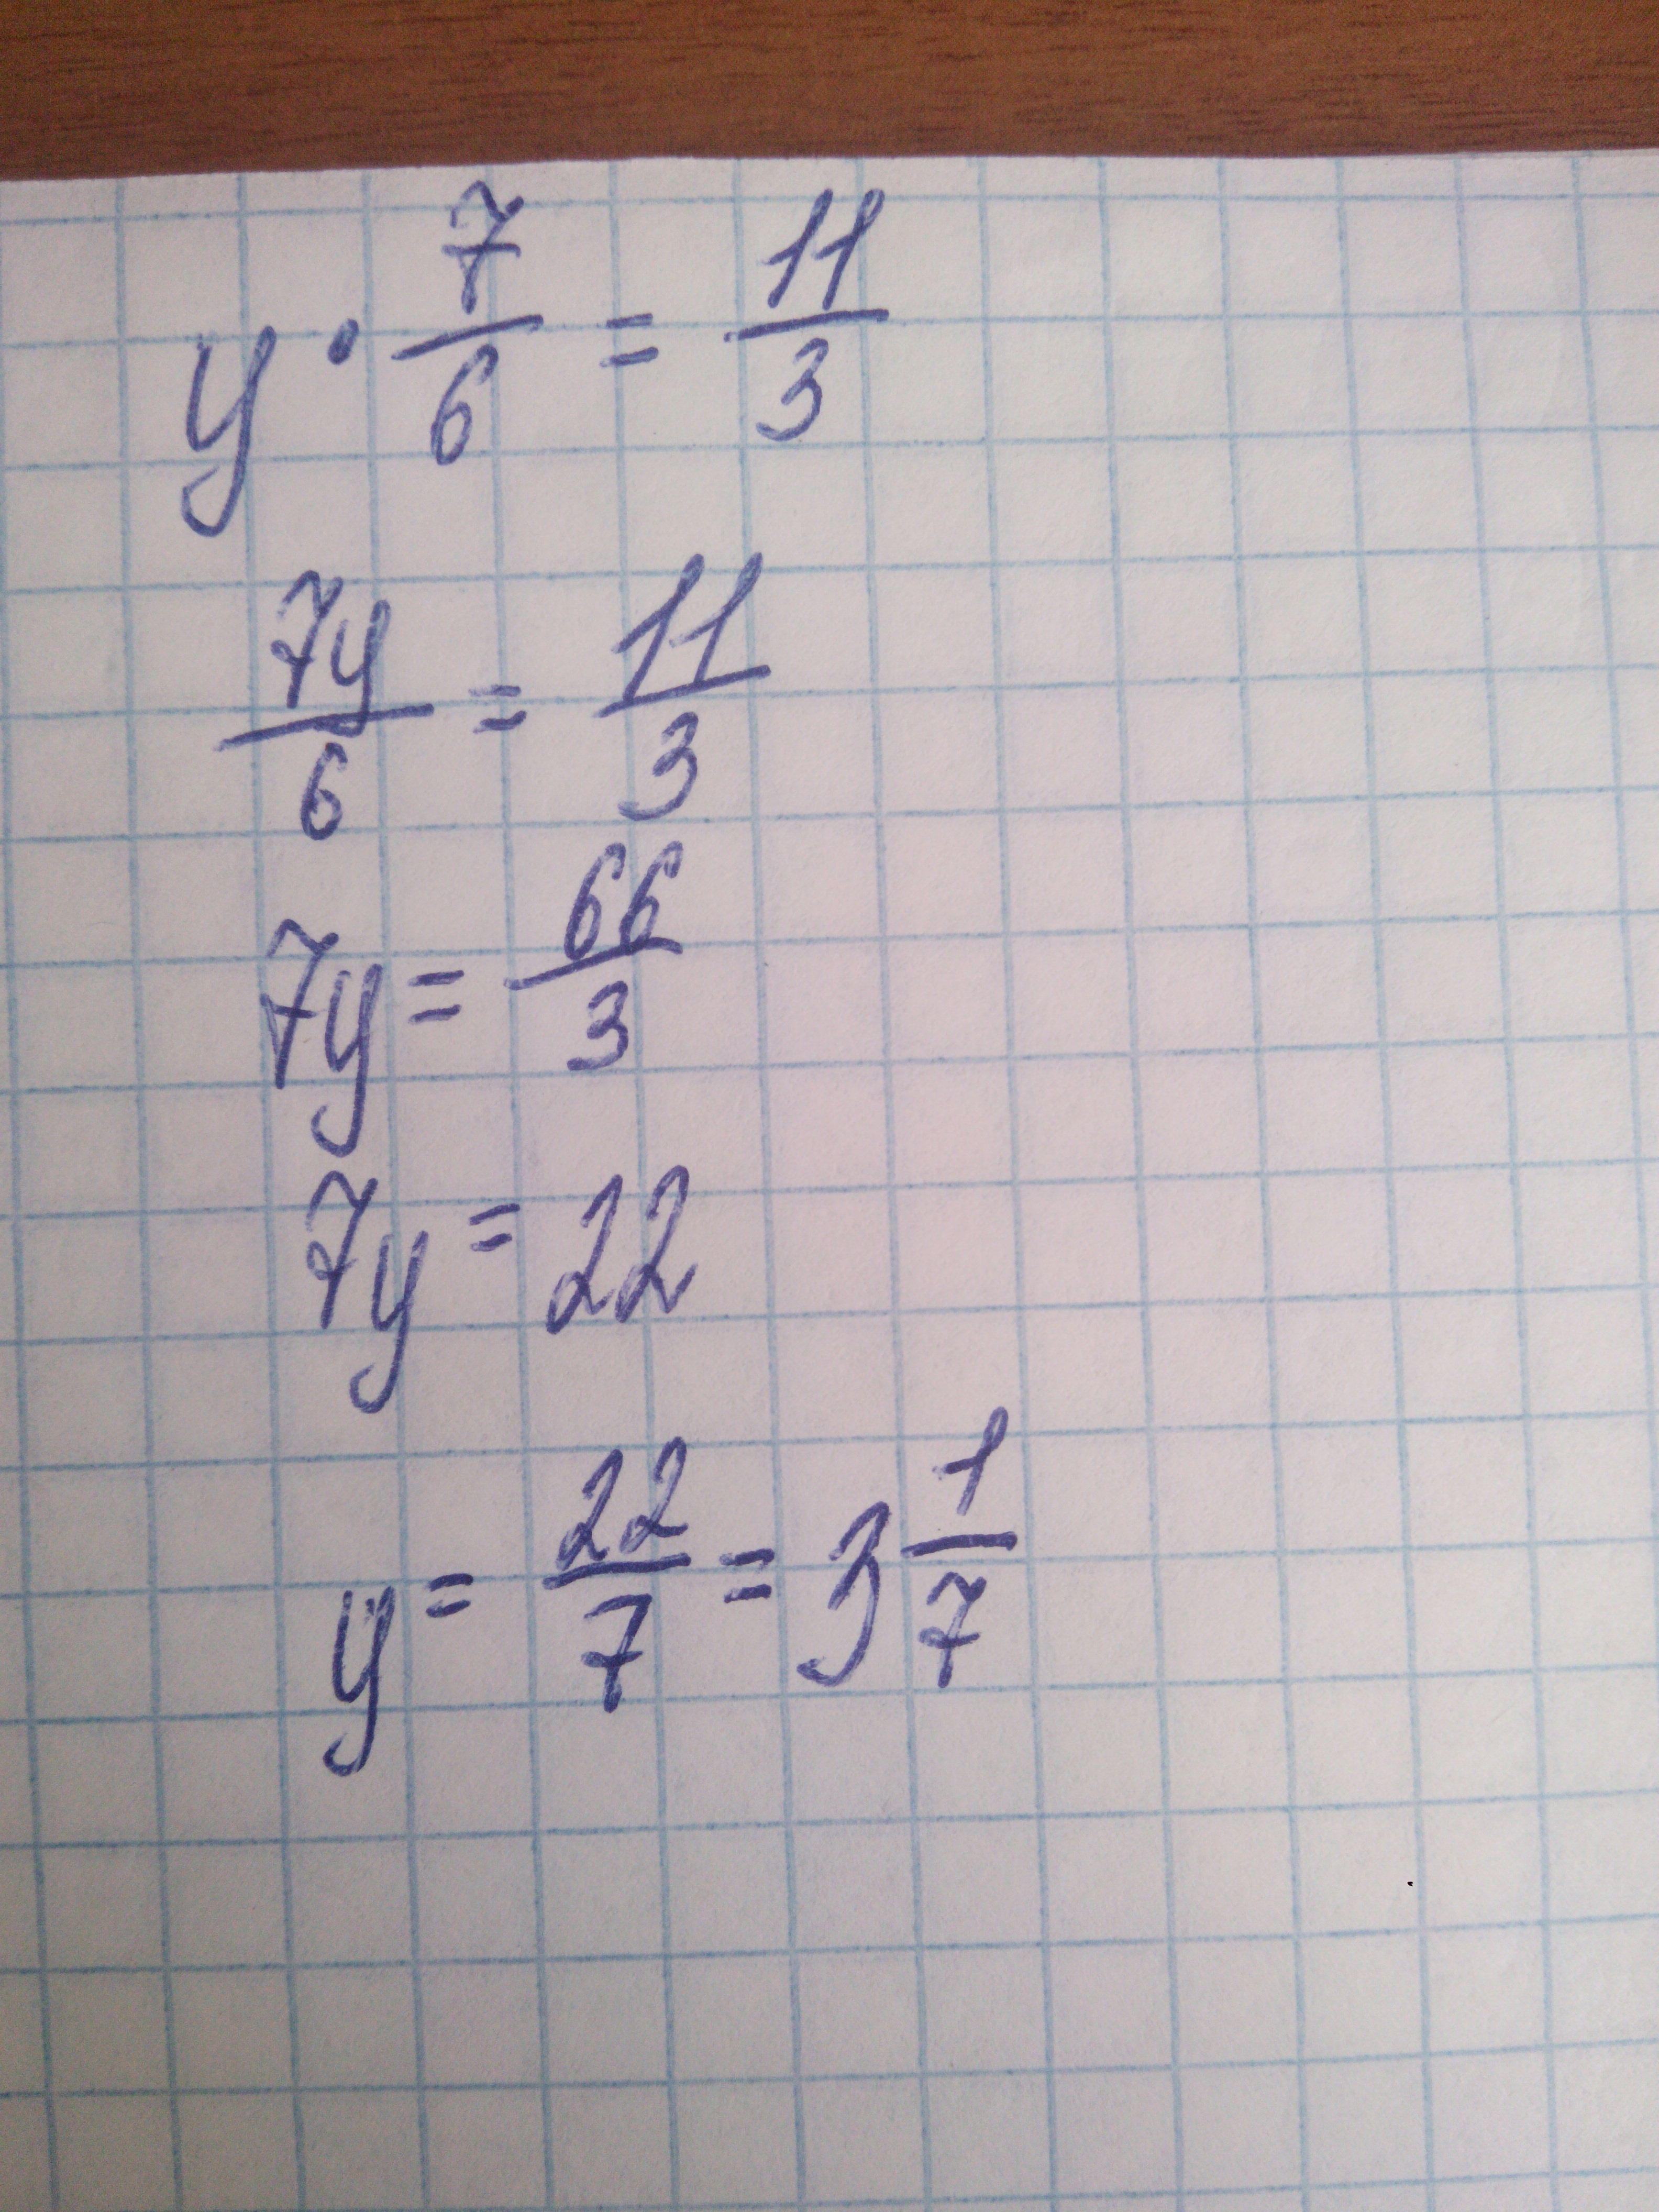 y · 7/6 = 11/3
7y/6 = 11/3
7y = 66/3
7y = 22
y = 22/7 = 3 1/7